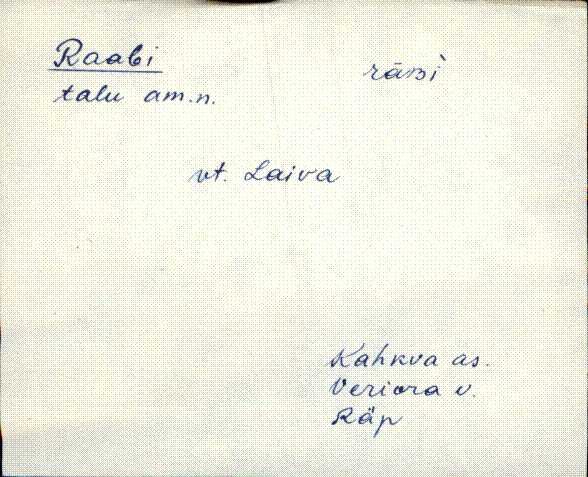 Raabi
rāʙì
talu am.n.
vt. Laiva
Kahkva as.
Veriora v.
Räp